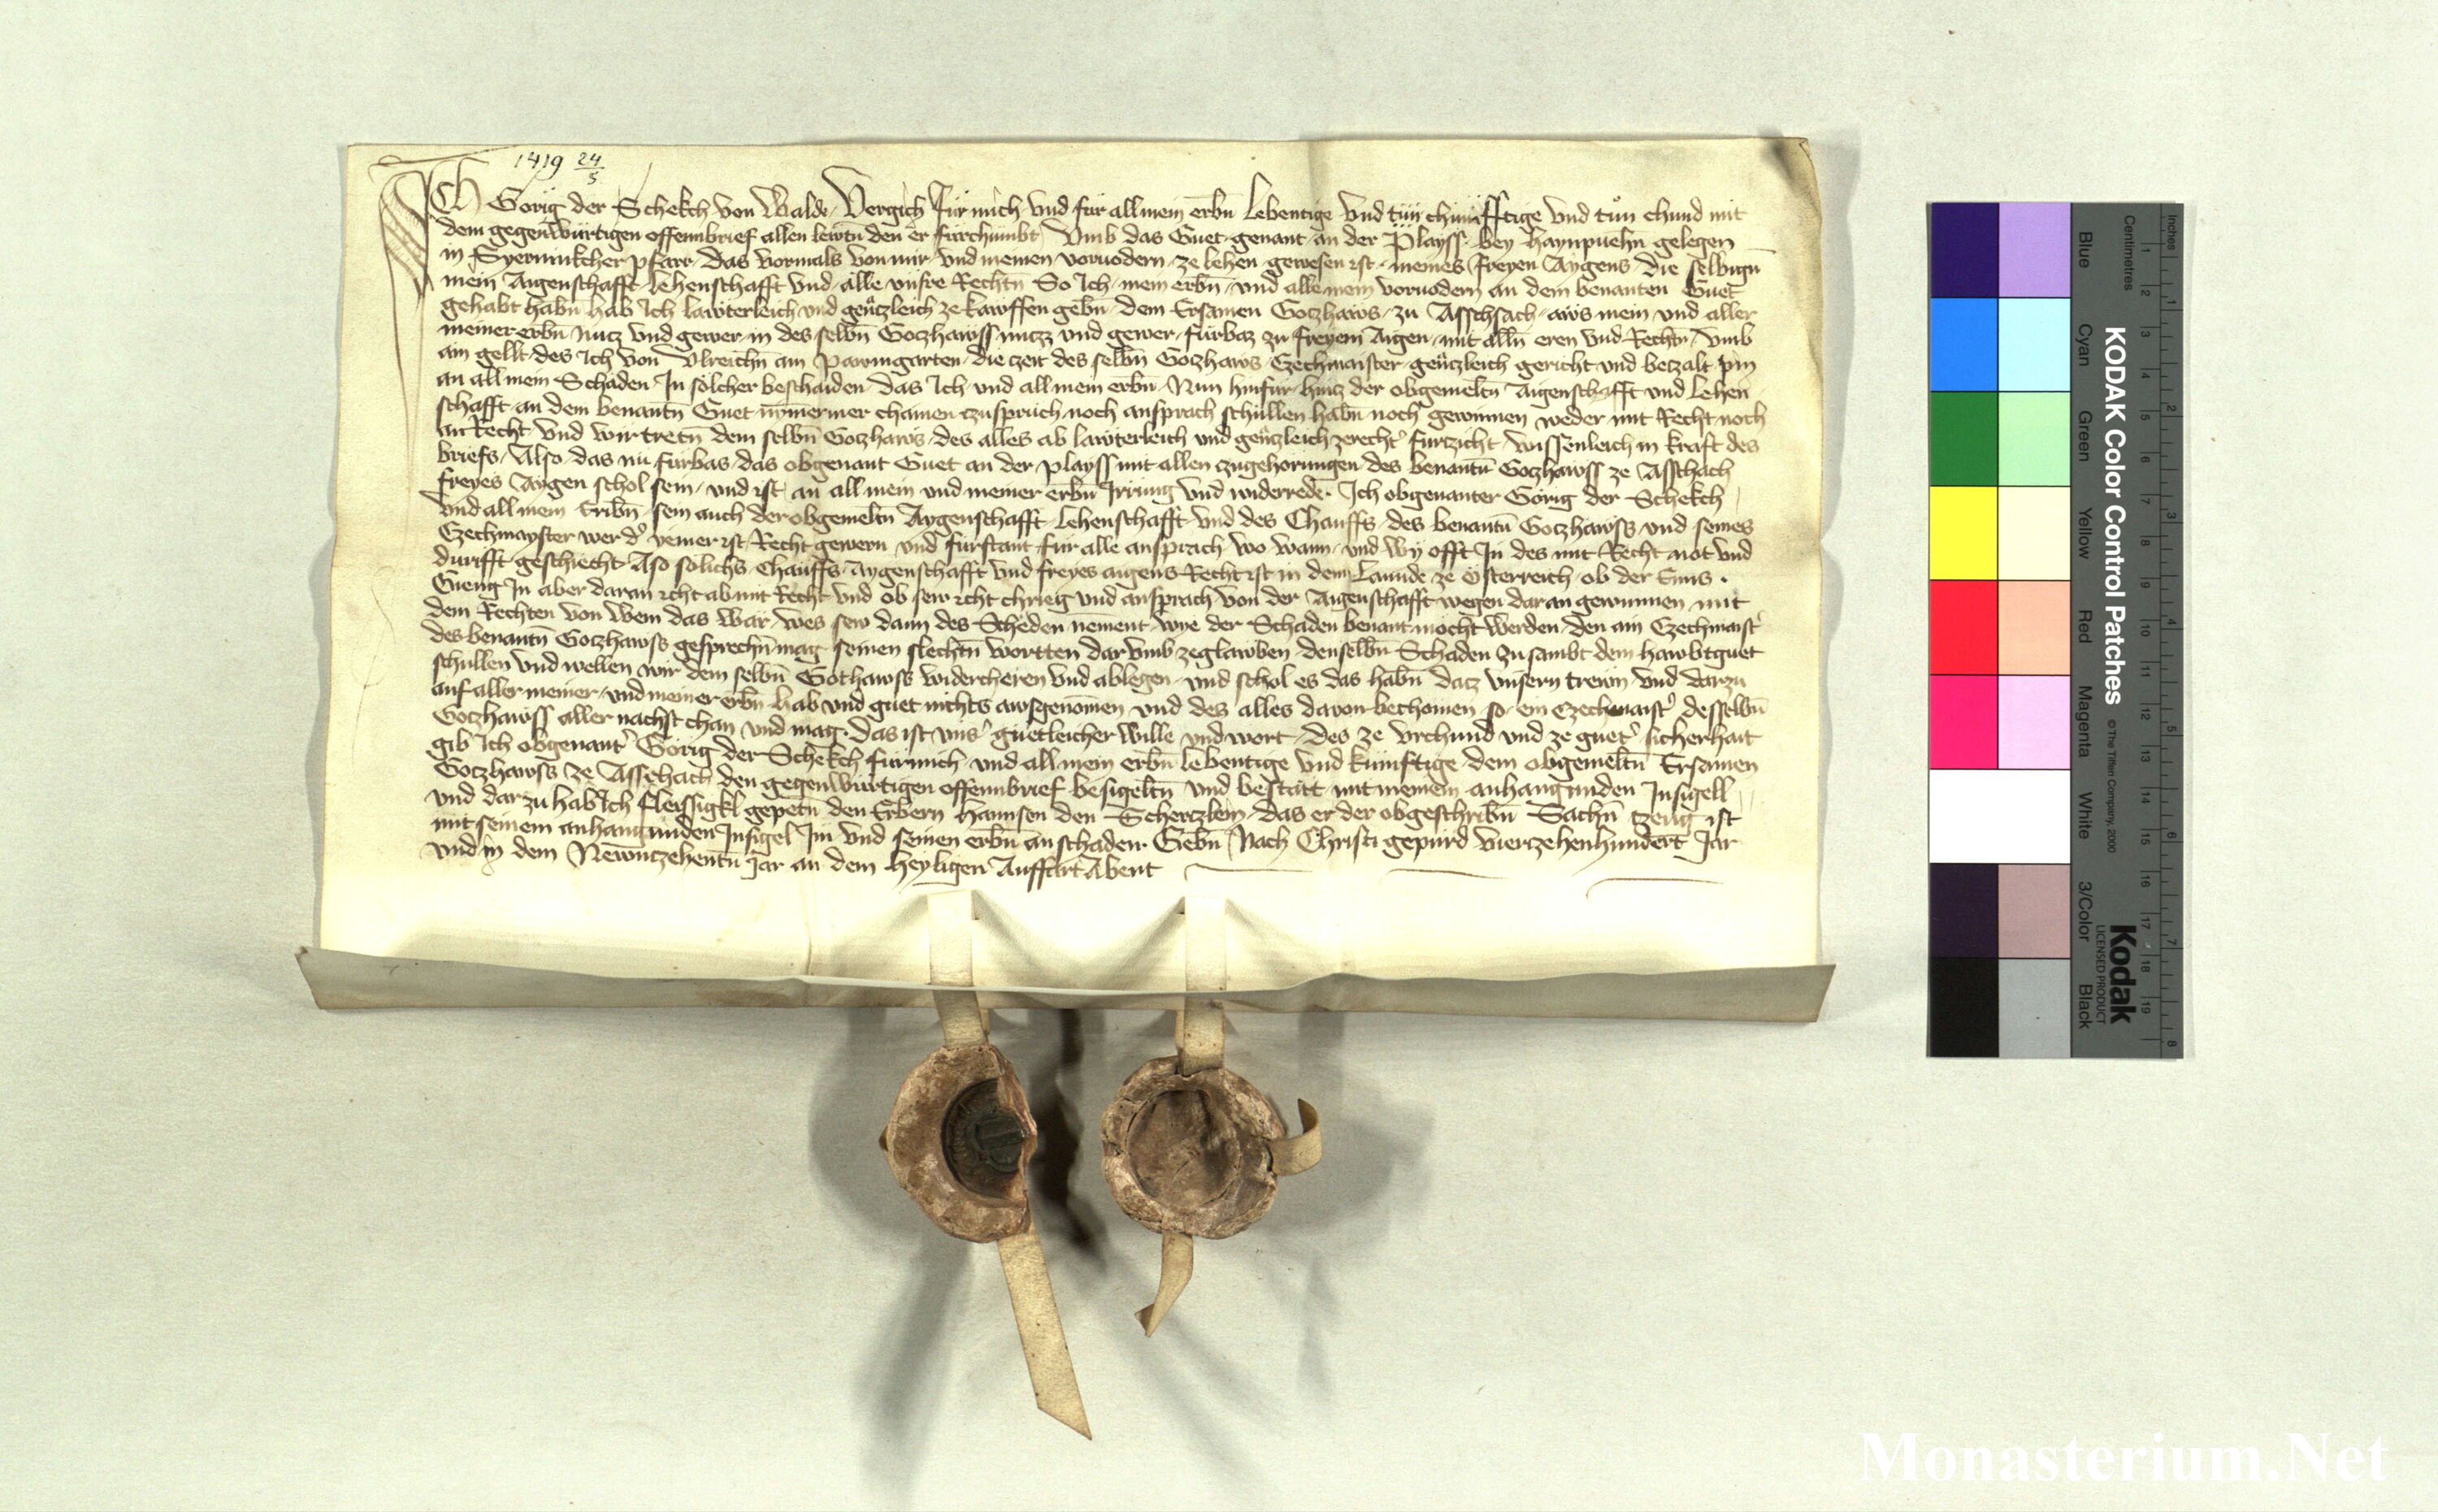 1419 24/5
ICH Görig der Schekch von Walde Vergich Für mich vnd für all mein erbn̄ Lebentige vnd tün chünfftige vnd tůn chund mit
dem gegenwürtigen offenn brief allen lewtn̄ den er fürchümbt Vmb das Guet genant an der Playss bey haynpuehn̄ gelegen
in Syernnikcher pfarr das vormals von mir vnd meinen voruodern ze lehen gewesen ist meines freyen Aygens die selbign̄
mein Aygenschafft lehenschafft vnd alle vnsre Rechtn̄ So Ich mein erbn̄ vnd alle mein voruodern an dem benanten Guet
gehabt habn̄ hab Ich lawterleich vnd gentzleich ze kawffen gebn̄ dem Ersamen Gotzhaws zu Asschach aws mein vnd aller
meiner erbn̄ nutz vnd gewer in des selbn̄ Gotzhawss nutz vnd gewer fürbaz zu freyem Aigen mit alln̄ eren vnd Rechtn̄ vmb
ain gellt des Ich von Vlreichn̄ am Pawmgarten die czeit des selbn̄ Gotzhaws Czechmaister gentzleich gericht vnd betzalt pin
an all mein Schaden In sölcher beschaiden das Ich vnd all mein erbn̄ Nun hinfür hintz der obgemeltn̄ Aigenschafft vnd Lehen
schafft an dem benantn̄ Guet nymermer chainen czuspruch noch ansprach schüllen habn̄ noch gewinnen weder mit Recht noch
an Recht vnd wir tretn̄ dem selbn̄ Gotzhaws des alles ab lawterleich vnd gentzleich ze rechter fürtzicht wissenleich in kraft des
briefs Also das nu fürbas das obgenant Guet an der playss mit allen czugehörungen des benantn̄ Gotzhawss ze Asschach
freyes Aygen schol sein vnd ist an all mein vnd meiner erbn̄ Irrung vnd widerrede Ich obgenanter Görig der Schekch
vnd all mein Eribn̄ sein auch der obgemeltn̄ Aygenschafft Lehenschafft vnd des Chauffs des benantn̄ Gotzhawss vnd seines
Czechmayster wer der yemer ist Recht gewern vnd fürstant für alle ansprach wo wann vnd wy offt In des mit Recht not vnd
durifft geschiecht Aso sölichs Chauffs Aygenschafft vnd freyes aigens Recht ist in dem Lannde ze Österreich ob der Enns
Gieng In aber daran icht ab mit Recht vnd ob sew icht chrieg vnd ansprach von der Aigenschafft wegen daran gewunnen mit
dem Rechten von wem das wär wes sew dann des Scheden nement wye der Schaden benant möcht werden den ain Czechmaister
des benantn̄ Gotzhawss gesprechn̄ mag seinen slechtn̄ wortten darvmb ze glawben denselbn̄ Schaden zusambt dem hawbtguet
schüllen vnd wellen wir dem selbn̄ Gothawss widercheren vnd ablegen vnd schol es das habn̄ datz vnsern trewn vnd darzu
auf aller meiner vnd meiner erbn̄ hab vnd guet nichts awsgenomen vnd des alles davon bechomen so ein Czechmaister desselbn̄
Gotzhawss aller nachst chan vnd mag das ist vnser güetleicher wille vnd wort des ze vrchund vnd ze gueter sicherhait
gib Ich obgenanter Görig der Schekch für mich vnd all mein erbn̄ lebentige vnd künftige dem obgemeltn̄ Ersamen
Gotzhawss ze Asschach den gegenwürtigen offenn brief besigeltn̄ vnd bestätt mit meinem anhangunden Insigell
vnd darzu hab Ich fleissigkl gepetn̄ den Erbern Hannsen den Schertzlein das er der obgeschribn̄ Sachn̄ tzeug ist
mit seinem anhangunden Insigel Im vnd seinen erbn̄ an schaden Gebn̄ Nach Christi gepürd viertzehenhundert Jar
vnd in dem Newntzehentn̄ Jar an dem heyligen Auffart Abent
KODAK Color Control Patches
© The Tiffen Company, 2000
Kodak
LICENSED PRODUCT
Inches
Centimetres
Blue
Cyan
Green
Yellow
Red
Magenta
White
3/Color
Black
Monasterium.Net